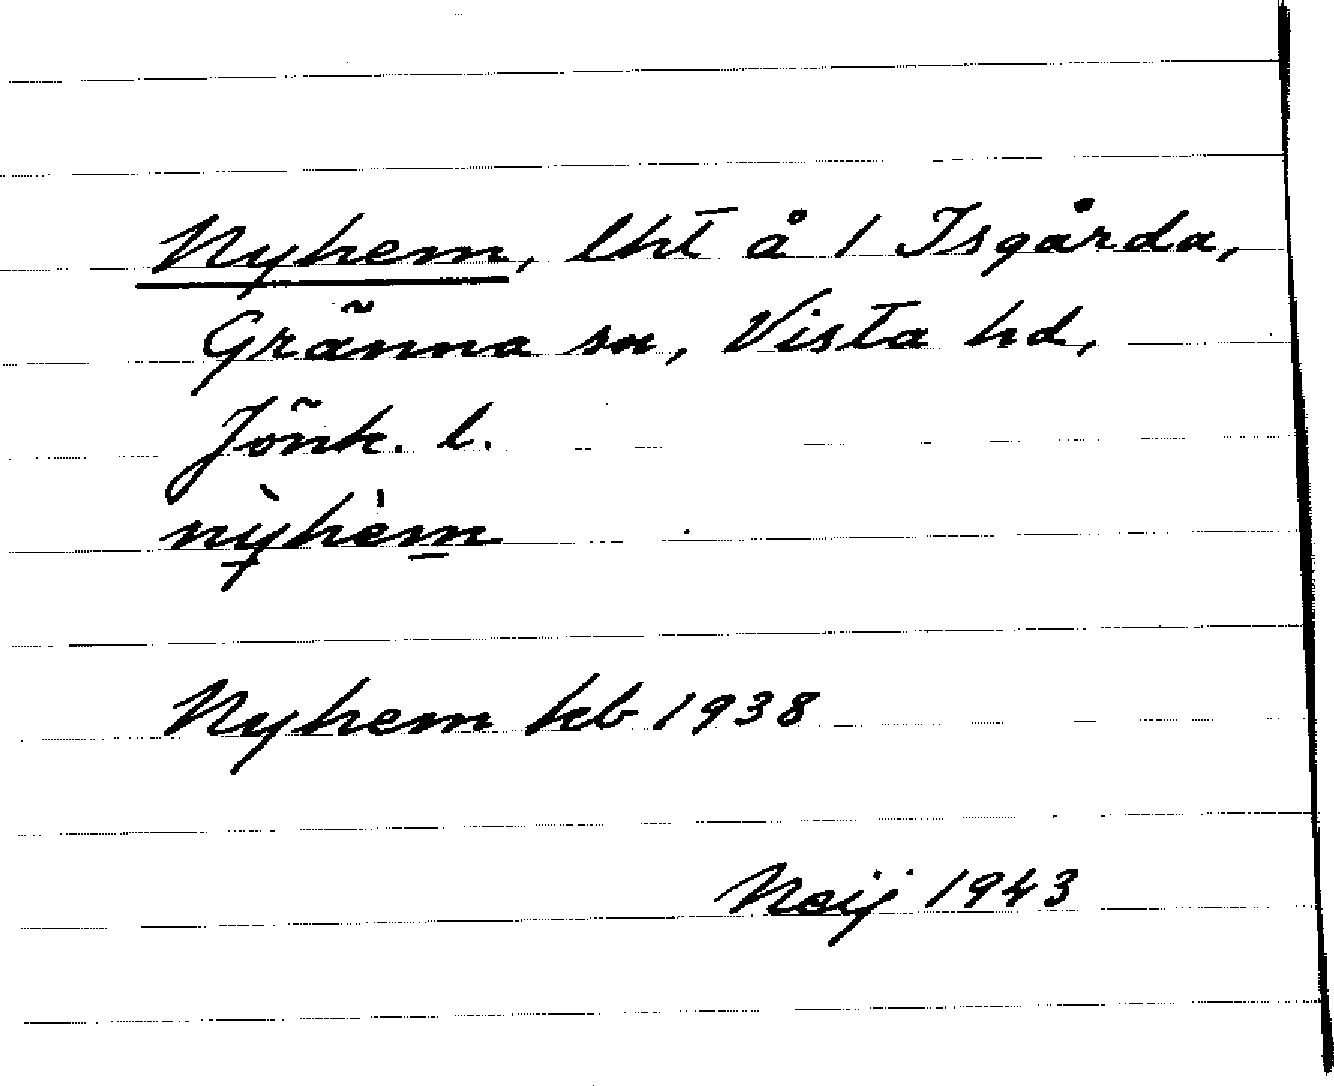 Nyhem, lht å 1 Isgårda,
Gränna sn, Vista hd,
Jönk. l.
nỳhèm
Nyhem kb 1938
Neij 1943